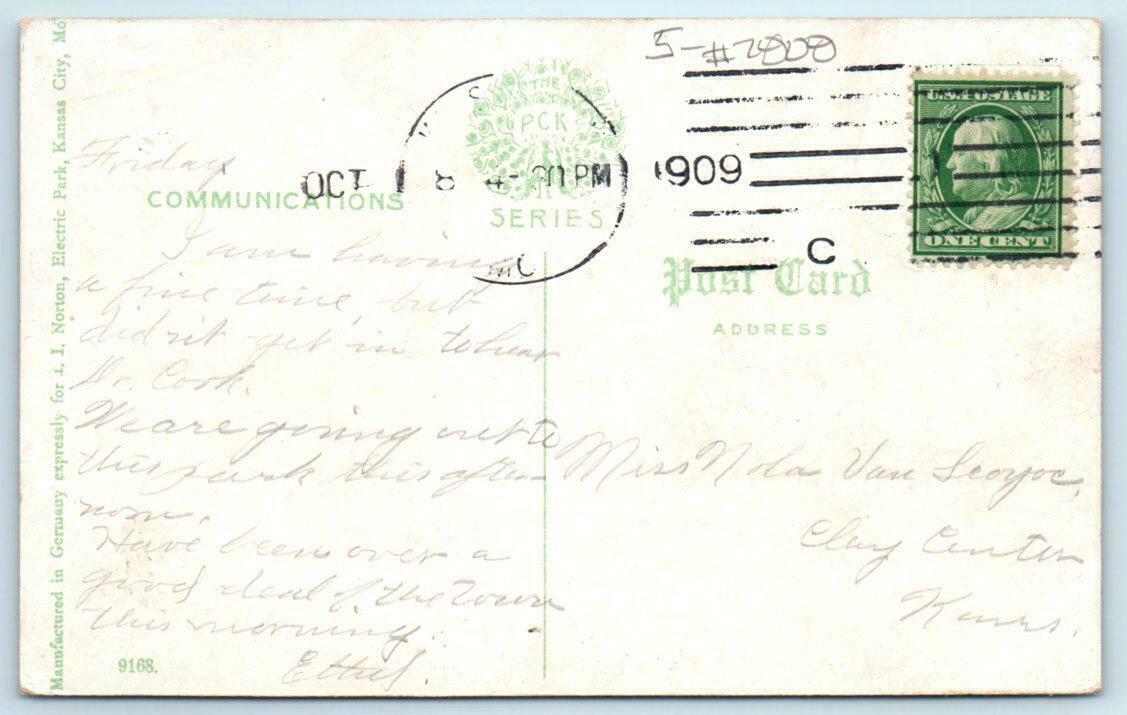 5-#2000
U.S. POSTAGE
ONE CENT
OCT 8 4-30 PM 1909
MO
C
THE
PCK
SERIES
COMMUNICATIONS
Post Card
ADDRESS
Friday
I am having
a fine time, but
didn't get in to hear
Dr. Cook.
We are going out to
this park this after-
noon.
Have been over a
good deal of the town
this morning.
Ethel.
Miss Nola Van Scoyoc,
Clay Center
Kans.
9168.
Manufactured in Germany expressly for I. I. Norton, Electric Park, Kansas City, Mo